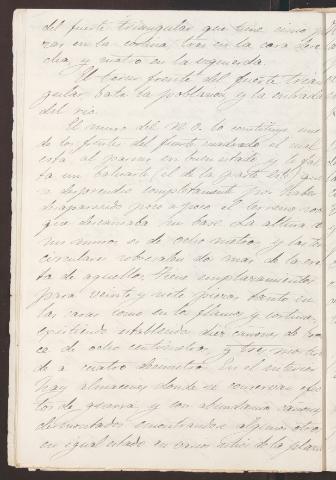 del fuerte triangular que tiene cinco
zas en la cortina, tres en la cara dere
cha, y cuatro en la izquierda.
El tercer frente del fuerte trian
gular bate la poblacion y la entrada
del rio.
El muro del N.O. lo constituye uno
de los frentes del fuerte cuadrado el cual
está al parecer en buen estado y le fal
ta un baluarte, el de la parte Este que
se desprendió completamente por haber
desaparecido poco a poco el terreno
que descansaba su base. La altura de
sus muros es de ocho metros, y las
circulares sobresalen dos mas de la
ta de aquellos. Tiene emplazamientos
para veinte y siete piezas tanto en
las caras como en los flancos y cortinas,
existiendo estallando diez cañones de
ce de ocho centimetros, y tres
de a cuatro decimetros. En el interior
hay almacenes donde se conservan efec
tos de guerra y son abundantes cañones
desmontados encontrandose algunos otros
en igual estado en varios sitios de la plaza